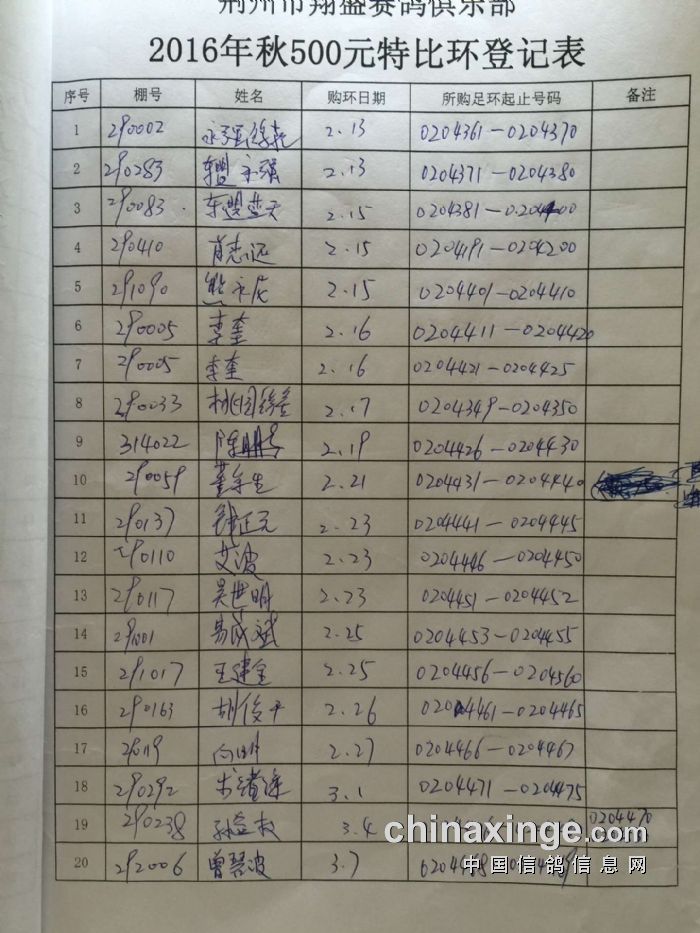 荆州市翔盛赛鸽俱乐部
2016年秋500元特比环登记表
序号 棚号 姓名 购环日期 所购足环起止号码 备注
1 290002 2.13 0204361-0204370
2 290283 东盟永强 2.13 0204371-0204380
3 290083 东盟蓝天 2.15 0204381-
4 290410 肖志远 2.15 0204191-0204200
5 291090 熊永庆 2.15 0204401-0204410
6 290005 李奎 2.16 0204411-0204420
7 290005 李奎 2.16 0204421-0204425
8 290033 2.17 0204349-0204350
9 314022 2.19 0204426-0204430
10 290059 2.21 0204431-0204440
11 290137 钟正元 2.23 0204441-0204445
12 290110 艾波 2.23 0204446-0204450
13 290117 吴世明 2.23 0204451-0204452
14 易成斌 2.25 0204453-0204455
15 291017 王建全 2.25 0204456-0204560
16 290163 胡俊平 2.26 0204461-0204465
17 向明 2.27 0204466-0204467
18 290292 3.1 0204471-0204475
19 290238 孙益权 3.4 0204470
chinaxinge.com
20 292006 曾琴波 3.7
中国信鸽信息网